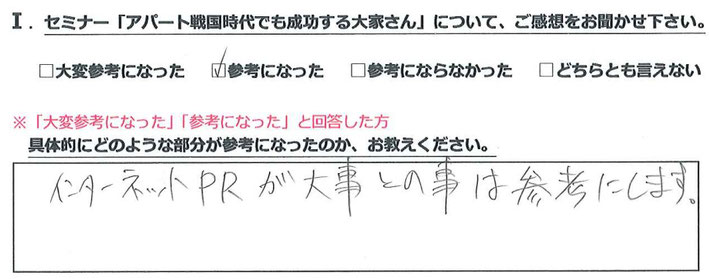 I. セミナー「アパート戦国時代でも成功する大家さん」について、ご感想をお聞かせ下さい。
□大変参考になった ☑参考になった □参考にならなかった □どちらとも言えない
※「大変参考になった」「参考になった」と回答した方
具体的にどのような部分が参考になったのか、お教えください。
インターネットPRが大事との事は参考にします。